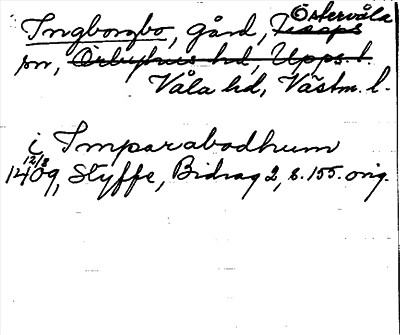 Ingborgbo, gård, Östervåla
sn, Örbyhus hd, Upps. l.
Våla hd, Västm. l.
i Imparabodhum
12/8 1409, Styffe, Bidrag 2, s. 155. orig.